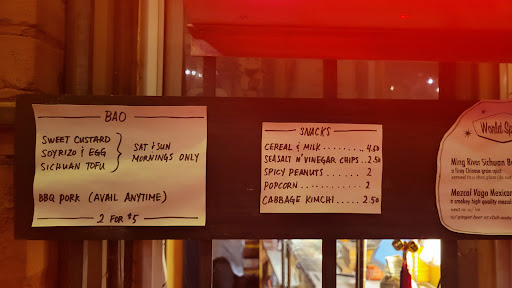 BAO
SWEET CUSTARD
SOYRIZO & EGG
SICHUAN TOFU
SAT & SUN
MORNINGS ONLY
BBQ PORK (AVAIL ANYTIME)
2 FOR $5
SNACKS
CEREAL & MILK ........ 4.50
SEASALT N' VINEGAR CHIPS .. 2.50
SPICY PEANUTS ....... 2
POPCORN ............ 2
CABBAGE KIMCHI ..... 2.50
World Sp
Ming River Sichuan B
Mezcal Vago Mexican
a smoky high quality mezcal